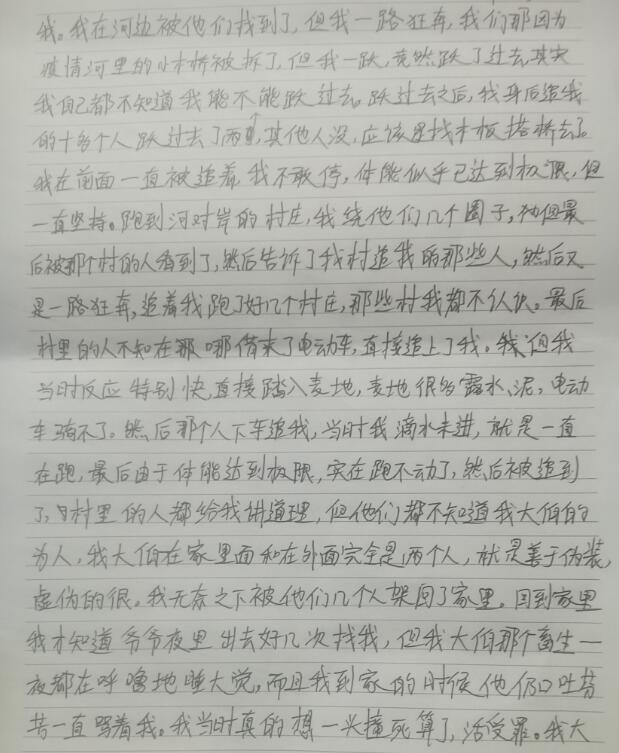 我。我在河边被他们找到了,但我一路狂奔,我们那因为
疫情河里的小木桥被拆了,但我一跃,竟然跃了过去,其实
我自己都不知道我能不能跃过去。跃过去之后,我身后追我
的十多个人跃过去了两,其他人没,应该是找木板搭桥去了。
我在前面一直被追着,我不敢停,体能似乎已达到极限,但
一直坚持。跑到河对岸的村庄,我绕他们几个圈子,但最
后被那个村的人看到了,然后告诉了我村追我的那些人,然后又
是一路狂奔,追着我跑了好几个村庄,那些村我都不认识。最后
村里的人不知在那哪借来了电动车,直接追上了我。我但我
当时反应特别快,直接踏入麦地,麦地很多露水、泥,电动
车骑不了。然后那个人下车追我,当时我滴水未进,就是一直
在跑,最后由于体能达到极限,实在跑不动了,然后被追到
了,村里的人都给我讲道理,但他们都不知道我大伯的
为人,我大伯在家里面和在外面完全是两个人,就是善于伪装,
虚伪的很。我无奈之下被他们几个人架回了家里。回到家里
我才知道爷爷夜里出去好几次找我,但我大伯那个畜生一
夜都在呼噜地睡大觉,而且我到家的时候他仍口吐芬
芳一直骂着我。我当时真的想一头撞死算了,活受罪。我大